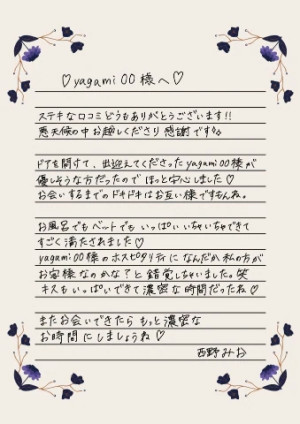 ♡yagami00様へ♡
ステキな口コミどうもありがとうございます!!
悪天候の中お越しくださり感謝です
ドアを開けて、出迎えてくださったyagami00様が
優しそうな方だったのでほっと安心しました♡
お会いするまでのドキドキはお互い様ですもんね。
お風呂でもベットでもいっぱいいちゃいちゃできて
すごく満たされました♡
yagami00様のホスピタリティになんだか私の方が
お客様なのかな?と錯覚しちゃいました。笑
キスもいっぱいできて濃密な時間だったね♡
またお会いできたらもっと濃密な
お時間にしましょうね♡
西野みお